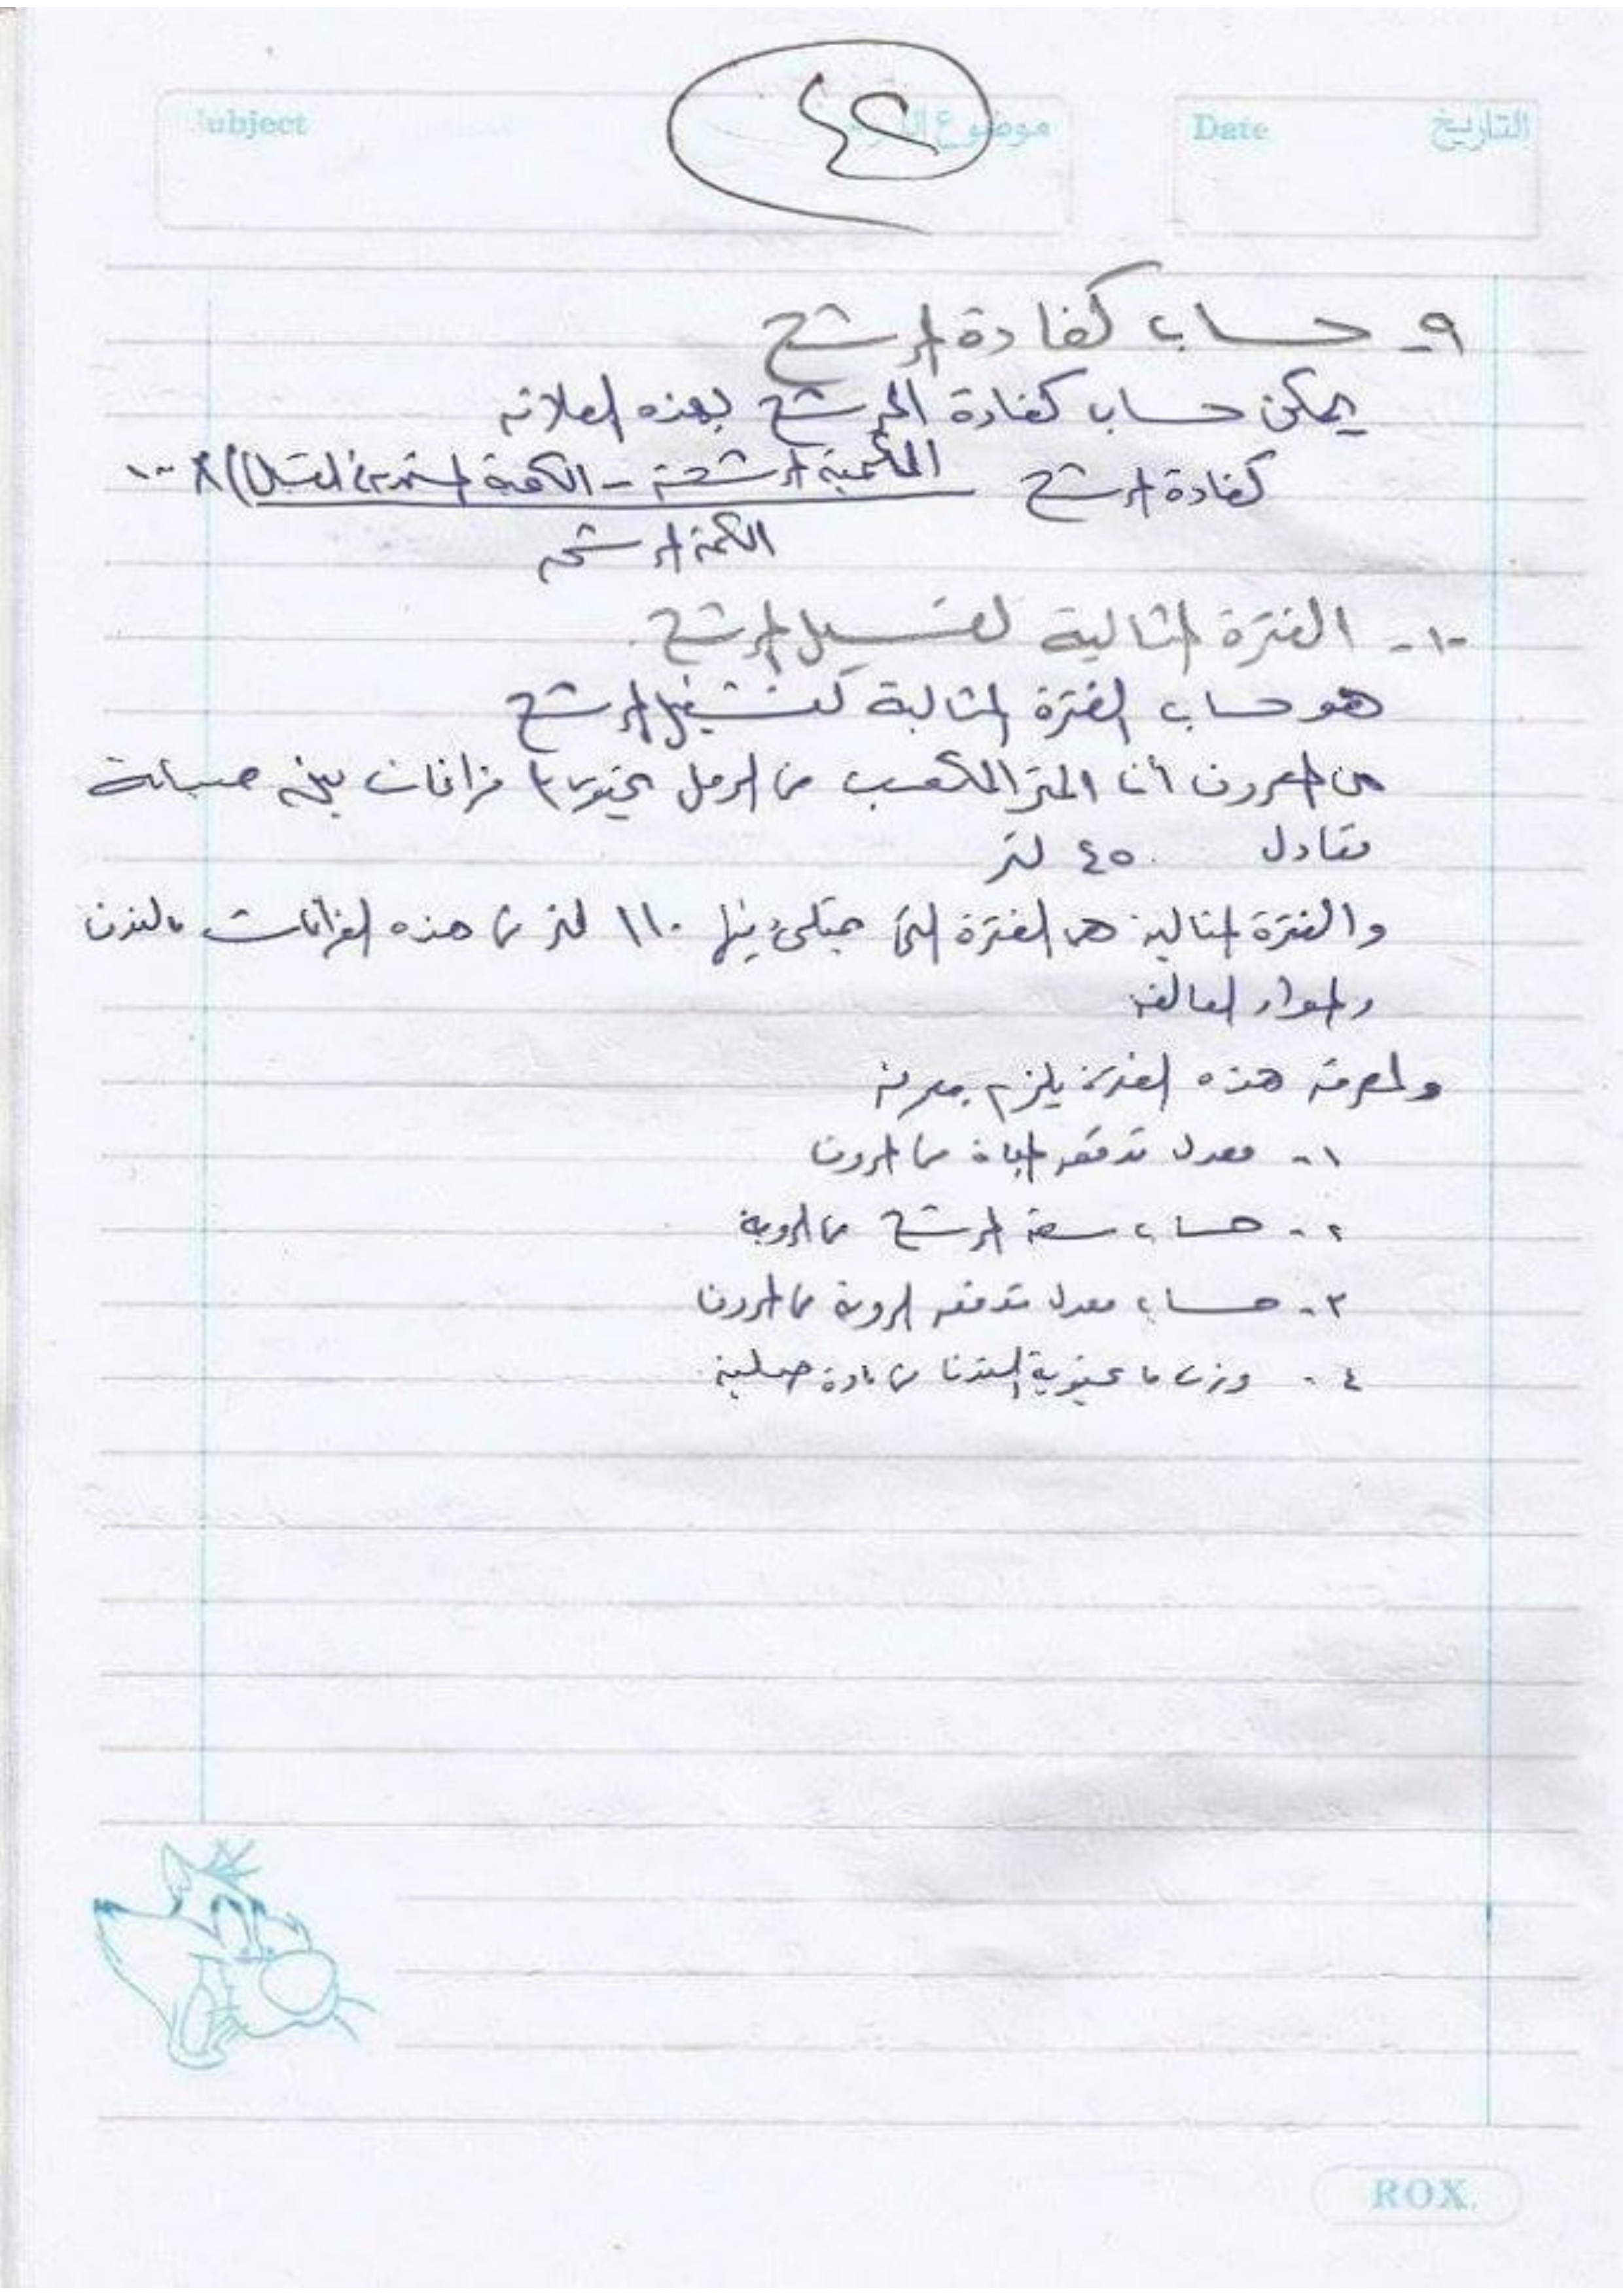 Subject
موضوع الدرس
Date
التاريخ
٤٢
٩- حساب كفاءة المرشح
يمكن حساب كفاءة المرشح بهذه العلاقة
كفاءة المرشح = (الكمية المرشحة - الكمية المستخدمة في الغسيل) × ١٠٠
الكمية المرشحة
١٠- الفترة المثالية لغسيل المرشح
هو حساب الفترة المثالية لتشغيل المرشح
من المعروف أن المتر المكعب من الرمل يحتوي فراغات بين حبيباته
تعادل ٤٥٠ لتر
والفترة المثالية هي الفترة التي يمتلئ فيها ١١٠ لتر من هذه الفراغات بالندف
والمواد العالقة
ولمعرفة هذه الفترة يلزم معرفة
١- معدل تدفق المياه من المروق
٢- حساب سعة المرشح من الروبة
٣- حساب معدل تدفق الروبة من المروق
٤- وزن ما تحتويه الندف من مادة صلبة
ROX.